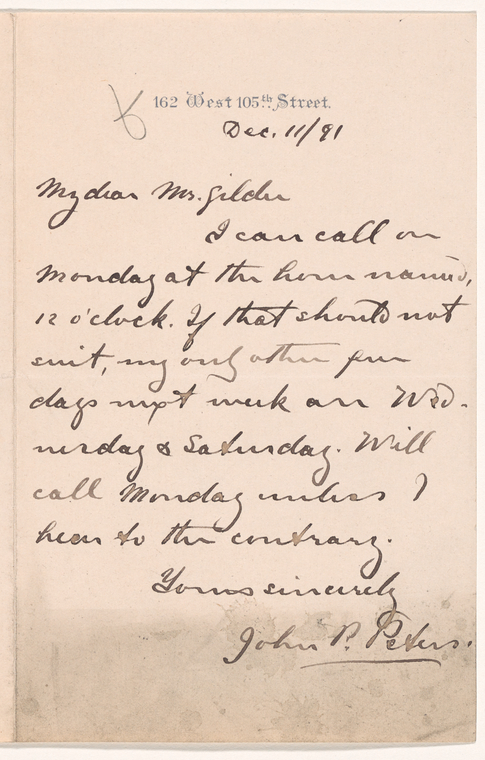 162 West 105th Street.
Dec. 11/91
My dear Mr. Gilder
I can call on
Monday at the hour named,
12 o'clock. If that should not
suit, my only other free
days next week are Wed-
nesday & Saturday. Will
call Monday unless I
hear to the contrary.
Yours sincerely
John P. Peters.